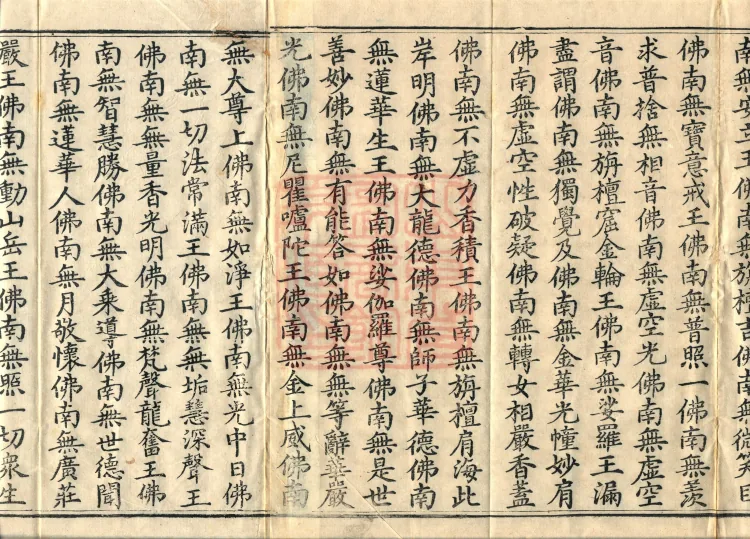 王佛南無旃檀吉佛南無微笑
佛南無寶意戒王佛南無普照一佛南無羨
求普捨無相音佛南無虛空光佛南無虛空
音佛南無旃檀窟金輪王佛南無娑羅王漏
盡謂佛南無獨覺及佛南無金華光幢妙肩
佛南無虛空性破疑佛南無轉女相嚴香蓋
佛南無不虛力香積王佛南無旃檀肩海此
岸明佛南無大龍德佛南無師子華德佛南
無蓮華生王佛南無娑伽羅尊佛南無是世
善妙佛南無有能答如佛南無無等辭華嚴
光佛南無尼瞿嚧陀王佛南無金上威佛南
無大尊上佛南無如淨王佛南無光中日佛
南無一切法常滿王佛南無無垢慧深聲王
佛南無無量香光明佛南無梵聲龍奮王佛
南無智慧勝佛南無大乘導佛南無世德聞
佛南無蓮華人佛南無月敬懷佛南無廣莊
嚴王佛南無動山岳王佛南無照一切衆生